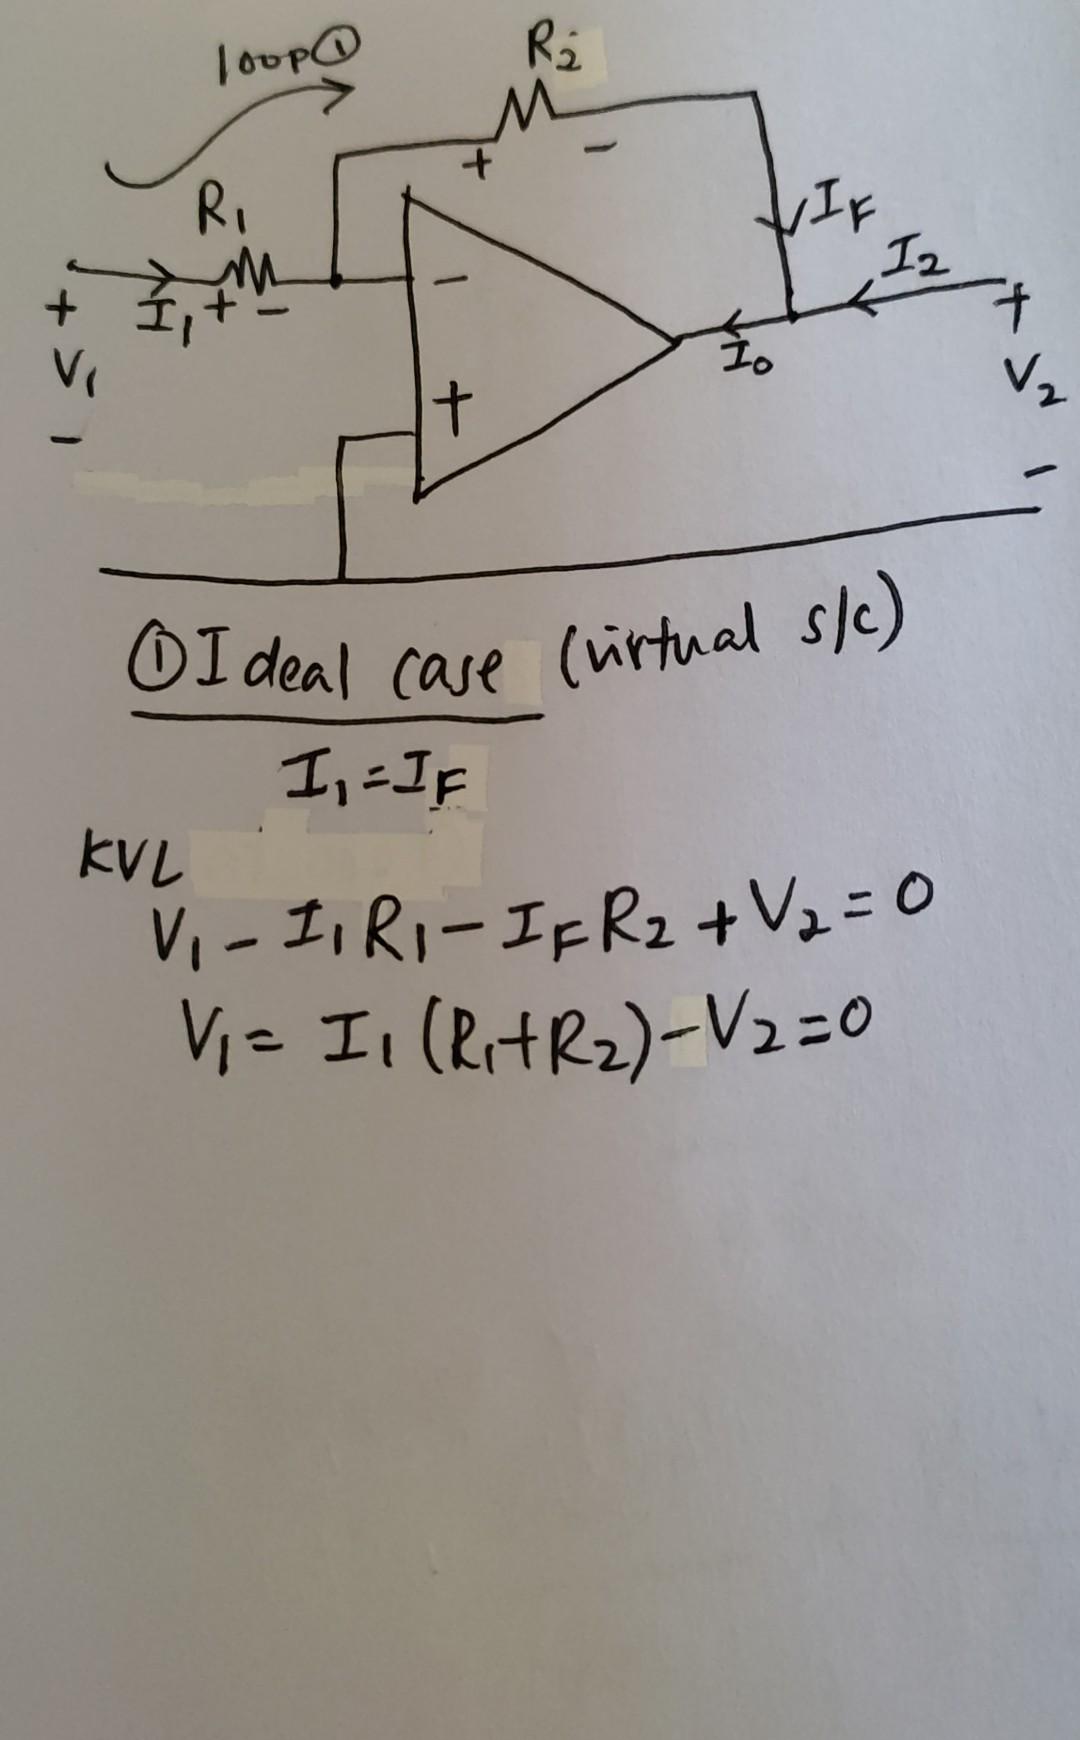 loop①
R₂
+ −
R₁
I_F
I₂
−
+ I₁ + −
+
I₀
V₁
V₂
+
−
−
① Ideal case (virtual s/c)
I₁ = I_F
KVL
V₁ − I₁R₁ − I_F R₂ + V₂ = 0
V₁ = I₁ (R₁+R₂) − V₂ = 0